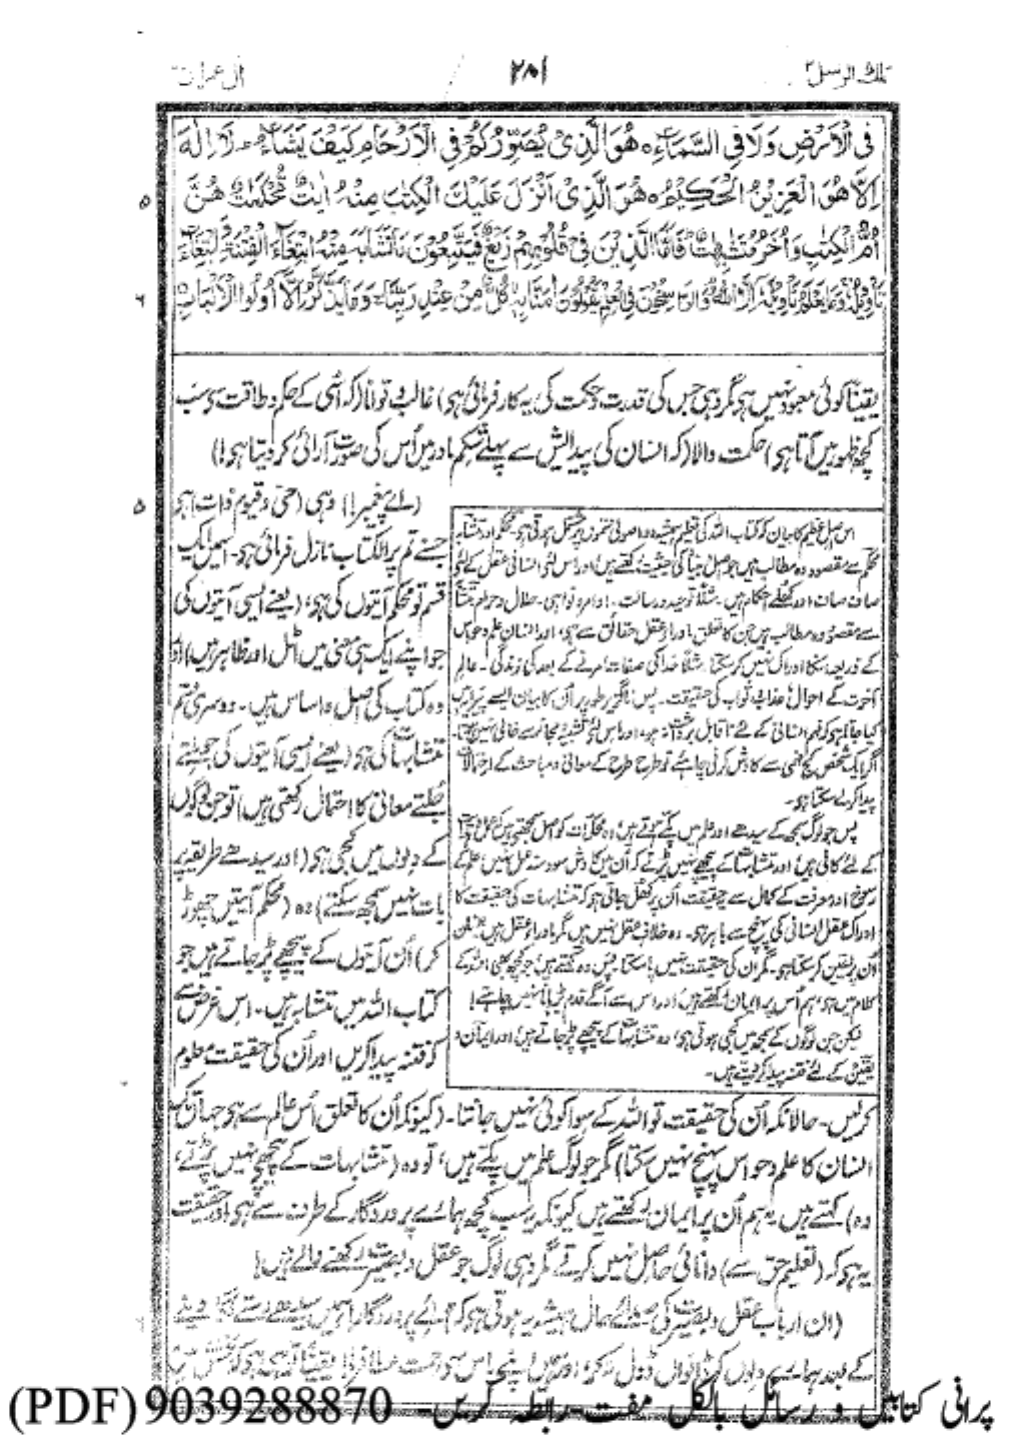 تلك الرسل ۳
۲۸۱
آل عمران
فِی الْاَرْضِ وَلَا فِی السَّمَآءِ ه هُوَ الَّذِیْ یُصَوِّرُكُمْ فِی الْاَرْحَامِ كَیْفَ یَشَآءُ لَآ اِلٰهَ
اِلَّا هُوَ الْعَزِیْزُ الْحَكِیْمُ ه هُوَ الَّذِیْ اَنْزَلَ عَلَیْكَ الْكِتٰبَ مِنْهُ اٰیٰتٌ مُّحْكَمٰتٌ هُنَّ
۵
اُمُّ الْكِتٰبِ وَاُخَرُ مُتَشٰبِهٰتٌ فَاَمَّا الَّذِیْنَ فِیْ قُلُوْبِهِمْ زَیْغٌ فَیَتَّبِعُوْنَ مَا تَشَابَهَ مِنْهُ ابْتِغَآءَ الْفِتْنَةِ وَابْتِغَآءَ
تَاْوِیْلِهٖ وَمَا یَعْلَمُ تَاْوِیْلَهٗ اِلَّا اللّٰهُ وَالرّٰسِخُوْنَ فِی الْعِلْمِ یَقُوْلُوْنَ اٰمَنَّا بِهٖ كُلٌّ مِّنْ عِنْدِ رَبِّنَا وَمَا یَذَّكَّرُ اِلَّآ اُولُوا الْاَلْبَابِ
۶
یقیناً کوئی معبود نہیں ہی مگر وہی جس کی قدرت و حکمت کی یہ کارفرمائی ہی) غالب و توانا (کہ اُسی کے حکم و طاقت سی سب
کچھ ظہور میں آتا ہی) حکمت والا (کہ انسان کی پیدائش سے پہلے شکم مادر میں اُس کی صورت آرائی کر دیتا ہی!)
۵
(اے پیغمبر!) وہی (حی و قیوم ذات) ہی
جسنے تم پر الکتاب نازل فرمائی ہی۔ اسمیں ایک
قسم تو محکم آیتوں کی ہی، (یعنے ایسی آیتوں کی
جو اپنے ایک ہی معنی میں اٹل اور ظاہر ہیں) اور
وہ کتاب کی اصل و اساس ہیں۔ دوسری قسم
متشابہات کی ہی (یعنے ایسی آیتوں کی جو ملتے
جُلتے معانی کا احتمال رکھتی ہیں) تو جن لوگوں
کے دلوں میں کجی ہی (اور سیدھے طریقہ پر
بات نہیں سمجھ سکتے) وہ (محکم آیتیں چھوڑ
کر) اُن آیتوں کے پیچھے پڑ جاتے ہیں جو
کتاب اللہ میں متشابہ ہیں۔ اس غرض سے
کہ فتنہ پیدا کریں اور اُن کی حقیقت معلوم
اس اصل عظیم کا بیان کہ کتاب اللہ کی تعلیم ہمیشہ دو اصولی قسموں پر مشتمل ہوتی ہی۔ محکم اور متشابہ
محکم سے مقصود وہ مطالب ہیں جو اصل و بنیاد کی حیثیت رکھتے ہیں اور اس لئی انسانی عقل کے لئی
صاف صاف اور کھلے احکام ہیں۔ مثلاً توحید و رسالت۔ اوامر و نواہی۔ حلال و حرام۔ متشابہ
سے مقصود وہ مطالب ہیں جن کا تعلق ماوراء عقل حقائق سے ہی، اور انسان علم و حواس
کے ذریعہ انکا ادراک نہیں کر سکتا۔ مثلاً خدا کی صفات، مرنے کے بعد کی زندگی۔ عالم
آخرت کے احوال، عذاب ثواب کی حقیقت۔ پس ناگزیر طور پر اُن کا بیان ایسے پیرایہ میں
کیا جاتا ہی کہ فہم انسانی کے لئے ناقابل برداشت نہو، اور اس لئی تشبیہ و مجاز سے خالی نہیں ہوتا۔
اگر ایک شخص کج فہمی سے کاوش کرنی چاہے تو طرح طرح کے معانی و مباحث کے احتمالات
پیدا کر لے سکتا ہی۔
پس جو لوگ سمجھ کے سیدھے اور علم میں پکے ہوتے ہیں، وہ محکمات کو اصل سمجھتے ہیں کہ عمل و
کے لئے کافی ہیں اور متشابہات کے پیچھے نہیں پڑتے کہ اُن میں کاوش سودمند عمل نہیں علم کے
رسوخ اور معرفت کے کمال سے یہ حقیقت اُن پر کھل جاتی ہی کہ متشابہات کی حقیقت کا
ادراک عقل انسانی کی پہنچ سے باہر ہی۔ وہ خلاف عقل نہیں ہیں مگر ماوراء عقل ہیں، انسان
اُن پر یقین کر سکتا ہی۔ مگر ان کی حقیقت نہیں پا سکتا، پس وہ کہتے ہیں، جو کچھ بھی اللہ کے
کلام میں ہی، ہم اُس پر ایمان رکھتے ہیں، اور اس سے آگے قدم بڑھانا نہیں چاہتے!
لیکن جن لوگوں کے سمجھ میں کجی ہوتی ہی، وہ متشابہات کے پیچھے پڑ جاتے ہیں، اور ایمان و
یقین کے لئے فتنہ پیدا کر دیتے ہیں۔
کرلیں۔ حالانکہ اُن کی حقیقت تو اللہ کے سوا کوئی نہیں جانتا۔ (کیونکہ اُن کا تعلق اُس عالم سے ہی جہاں تک
انسان کا علم و حواس پہنچ نہیں سکتا) مگر جو لوگ علم میں پکے ہیں، تو وہ (متشابہات کے پیچھے نہیں پڑتے،
وہ) کہتے ہیں "ہم اُن پر ایمان رکھتے ہیں کیونکہ یہ سب کچھ ہمارے پروردگار کے طرف سے ہی اور حقیقت
یہ ہی کہ (تعلیم حق سے) دانائی حاصل نہیں کرتے مگر وہی لوگ جو عقل و بصیرت رکھنے والے ہیں!
(ان ارباب عقل و بصیرت کی صدائے حال ہمیشہ یہ ہوتی ہی کہ) اے پروردگار! ہمیں سیدھے رستے لگا دینے
کے بعد ہمارے دلوں کو ڈانواں ڈول نہ کر، اور ہمیں اپنے پاس سے رحمت عطا فرما! یقیناً
پرانی کتابیں و رسائل بالکل مفت-رابطہ کریں- 9039288870 (PDF)